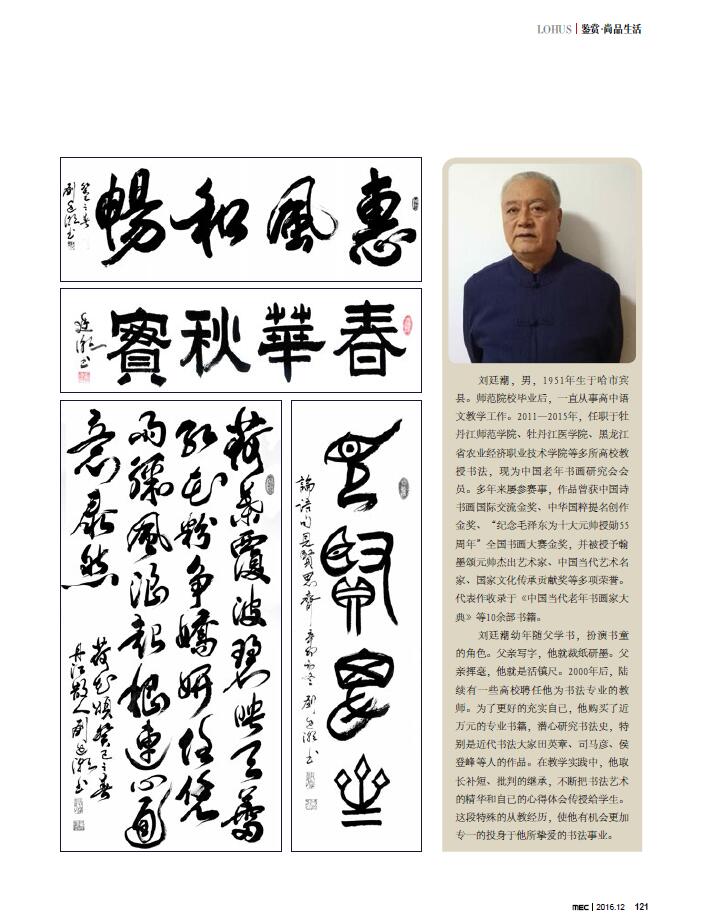 LOHUS | 鉴赏·尚品生活
惠風和暢
癸巳之春
劉廷潮书
春華秋實
廷潮书
荷葉覆波碧映天蕾
紅花粉争嬌妍任凭
雨骤風浪起根連心通
意泰然
荷花頌癸巳之春
丹江散人劉廷潮书
見賢思齊
論語句見賢思齊辛卯初冬劉廷潮书
刘廷潮，男，1951年生于哈市宾
县。师范院校毕业后，一直从事高中语
文教学工作。2011—2015年，任职于牡
丹江师范学院、牡丹江医学院、黑龙江
省农业经济职业技术学院等多所高校教
授书法，现为中国老年书画研究会会
员。多年来屡参赛事，作品曾获中国诗
书画国际交流金奖、中华国粹提名创作
金奖、“纪念毛泽东为十大元帅授勋55
周年”全国书画大赛金奖，并被授予翰
墨颂元帅杰出艺术家、中国当代艺术名
家、国家文化传承贡献奖等多项荣誉。
代表作收录于《中国当代老年书画家大
典》等10余部书籍。
刘廷潮幼年随父学书，扮演书童
的角色。父亲写字，他就裁纸研墨。父
亲挥毫，他就是活镇尺。2000年后，陆
续有一些高校聘任他为书法专业的教
师。为了更好的充实自己，他购买了近
万元的专业书籍，潜心研究书法史，特
别是近代书法大家田英章、司马彦、侯
登峰等人的作品。在教学实践中，他取
长补短、批判的继承，不断把书法艺术
的精华和自己的心得体会传授给学生。
这段特殊的从教经历，使他有机会更加
专一的投身于他所挚爱的书法事业。
MEC | 2016.12 121